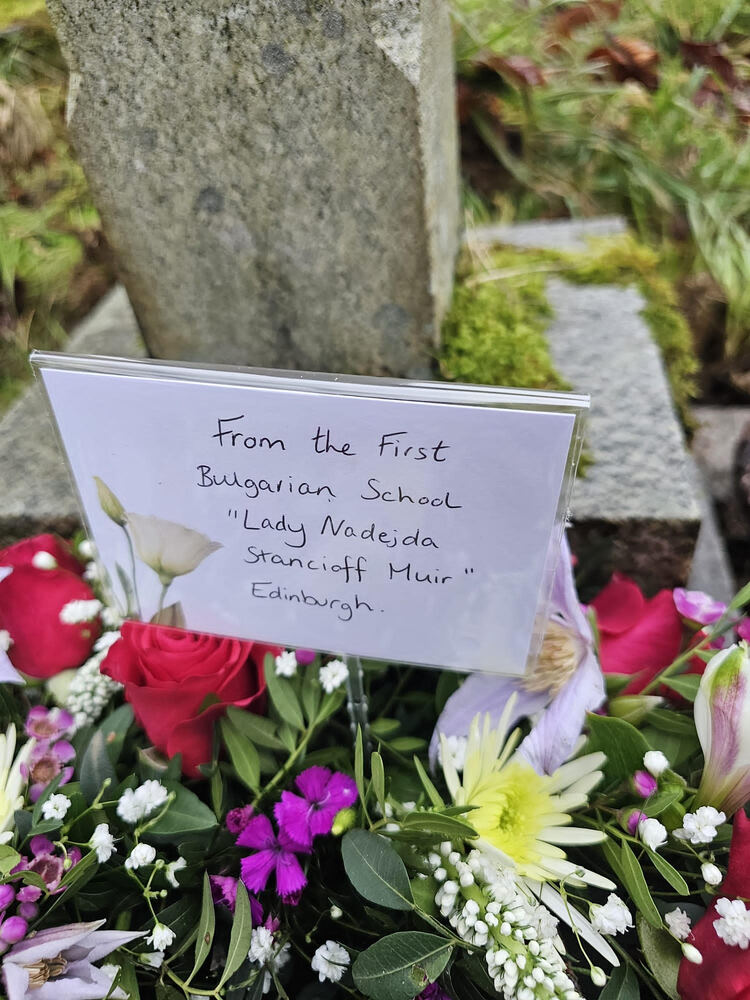 From the First
Bulgarian School
"Lady Nadejda
Stancioff Muir"
Edinburgh.